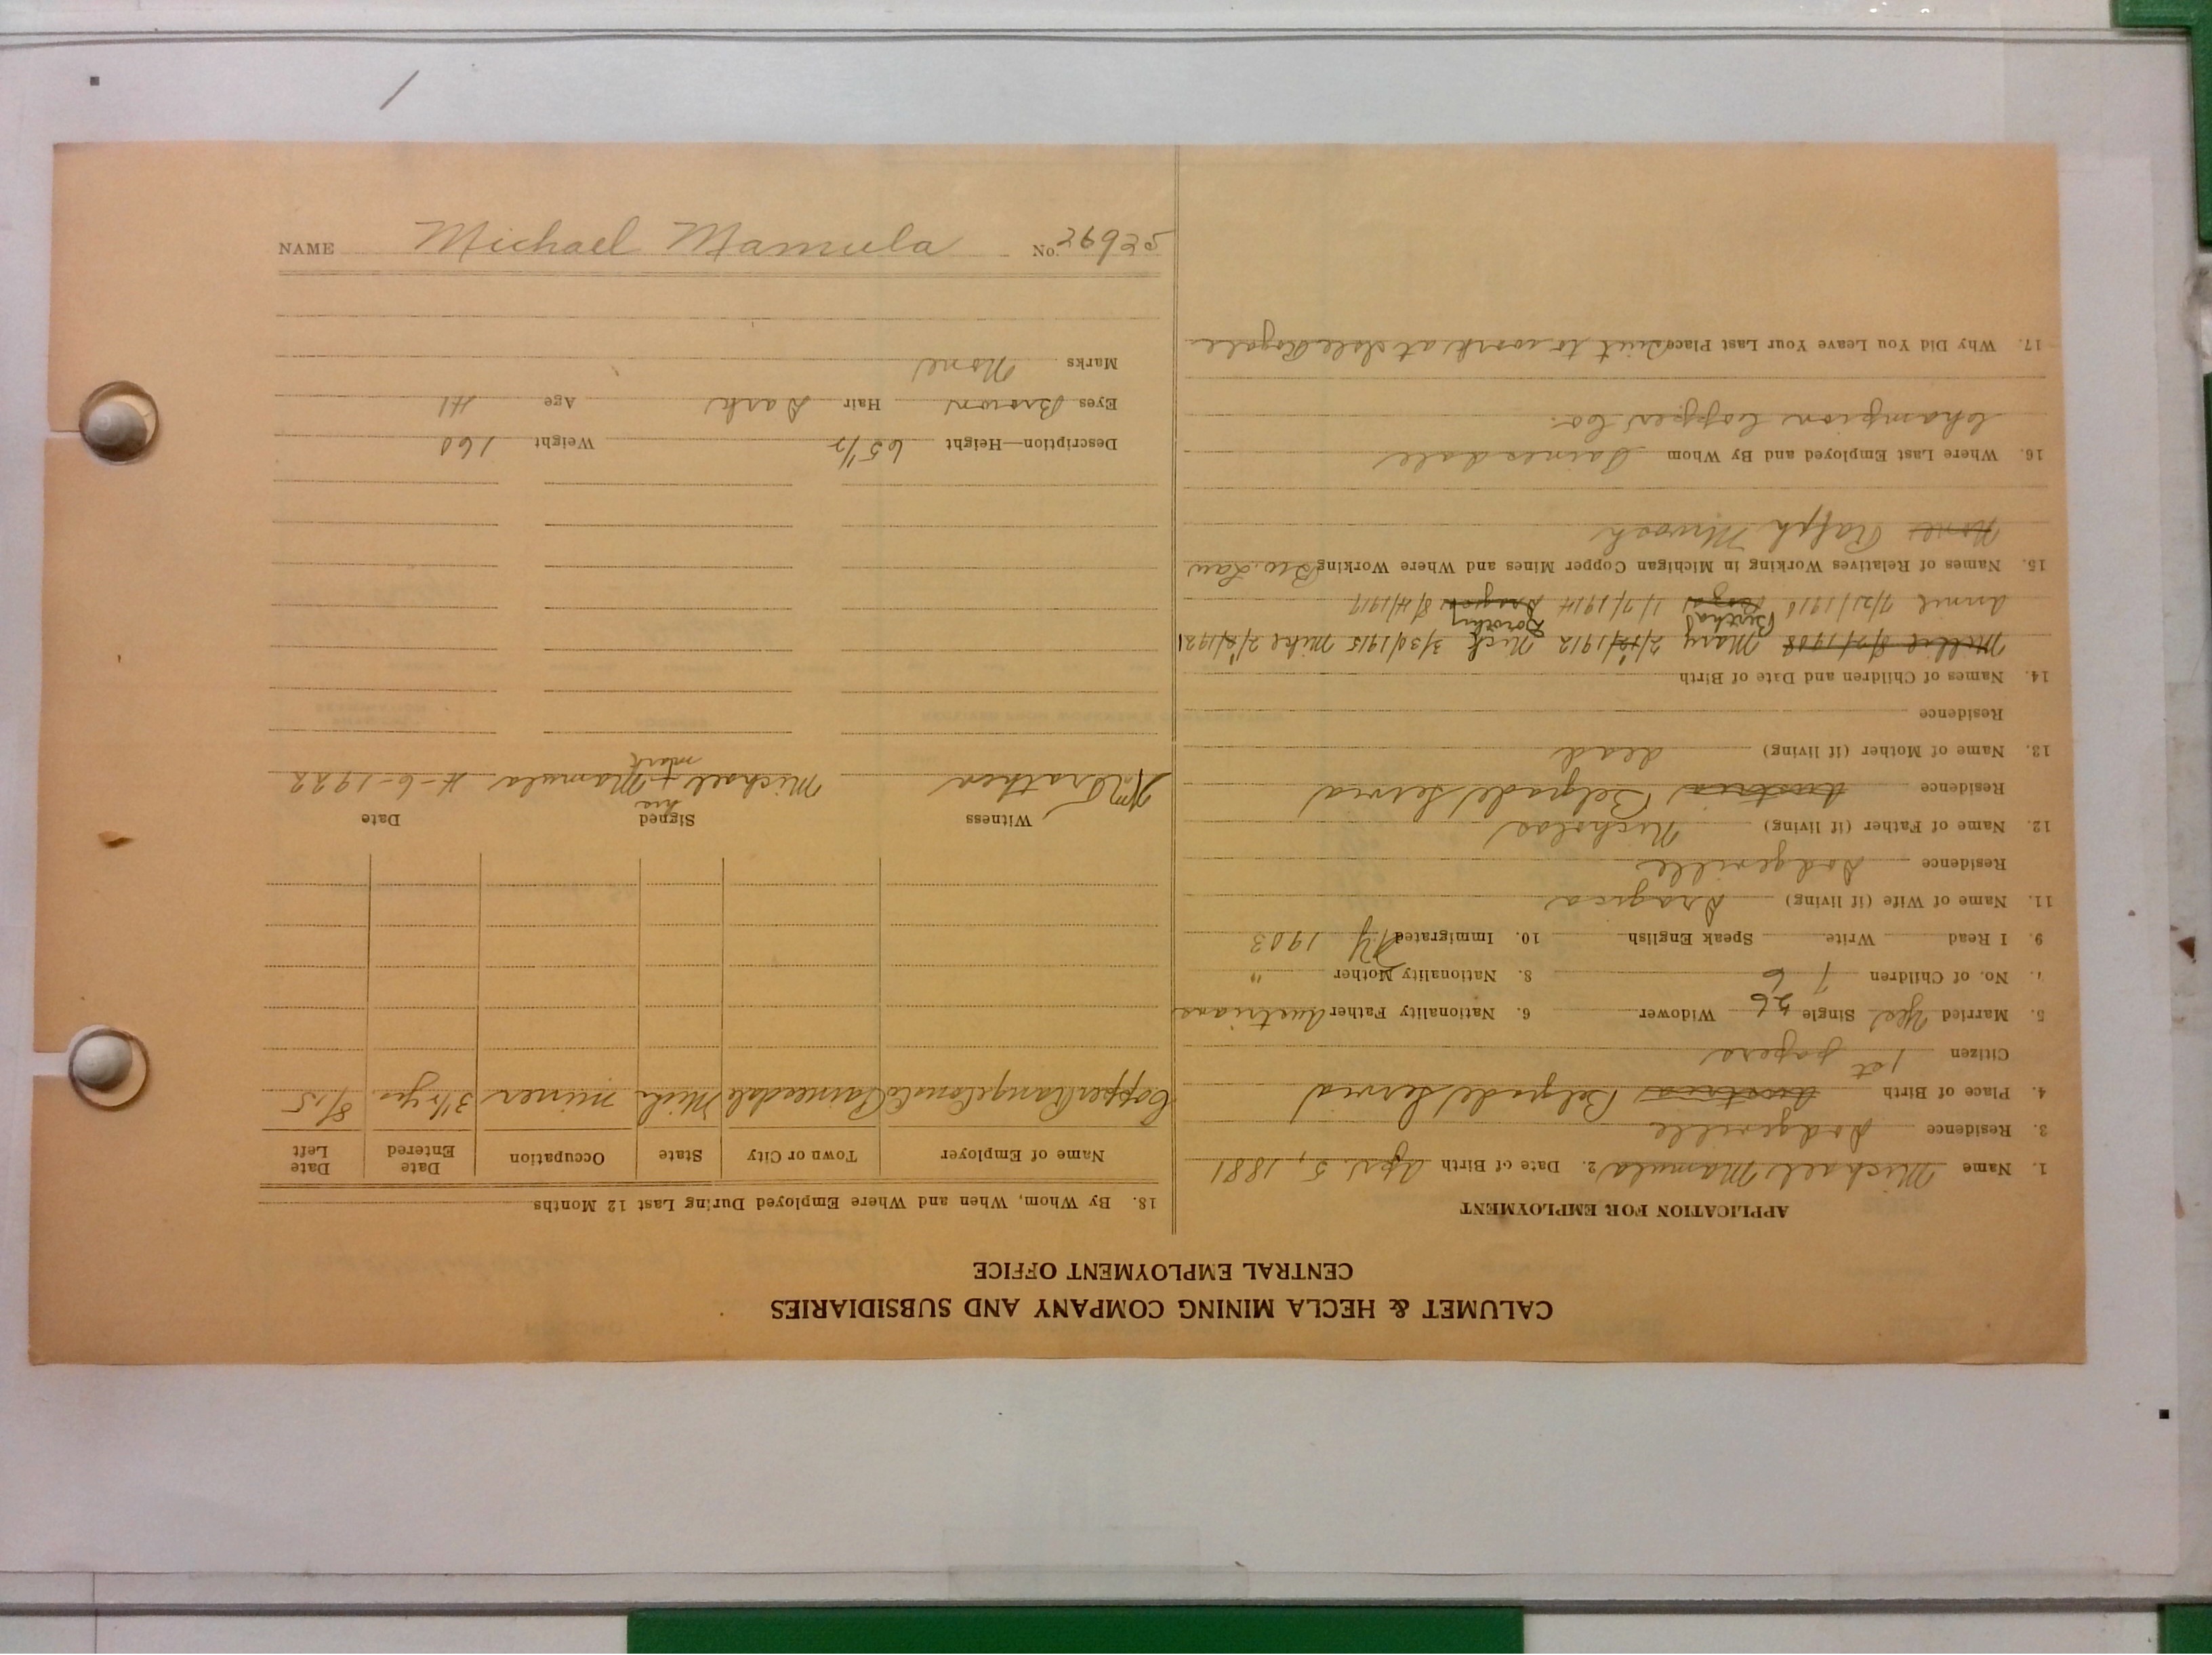 CALUMET & HECLA MINING COMPANY AND SUBSIDIARIES
CENTRAL EMPLOYMENT OFFICE
APPLICATION FOR EMPLOYMENT
1. Name Michael Mamula 2. Date of Birth Apr. 5, 1881
3. Residence Dodgeville
4. Place of Birth Austria Belgrade Servia
Citizen 1st papers
5. Married Yes Single 26 Widower 6. Nationality Father Austrians
7. No. of Children 7 6 8. Nationality Mother "
9. I Read Write Speak English 10. Immigrated NY 1903
11. Name of Wife (if living) Dragica
Residence Dodgeville
12. Name of Father (if living) Nicholas
Residence Austria Belgrade Servia
13. Name of Mother (if living) dead
Residence
14. Names of Children and Date of Birth
Millie 8/2/1908 Mary 2/12/1912 Nick 3/30/1915 Mike 2/2/1921
Bertha Dorothy
Annie 7/21/1910 1/7/1914 8/4/1917
15. Names of Relatives Working in Michigan Copper Mines and Where Working Bro. Law
None Ralph
16. Where Last Employed and By Whom Painesdale
Champion Copper Co.
17. Why Did You Leave Your Last Place Quit to work at Isle Royale
18. By Whom, When and Where Employed During Last 12 Months
Name of Employer Town or City State Occupation Date Entered Date Left
Copper Range Cons Co Painesdale Mich miner 3 1/2 yrs 8/15
Witness Signed Date
his
Michael + Mamula 4-6-1922
mark
Description—Height 65 1/2 Weight 160
Eyes Brown Hair Dark Age 41
Marks None
NAME Michael Mamula No. 26925